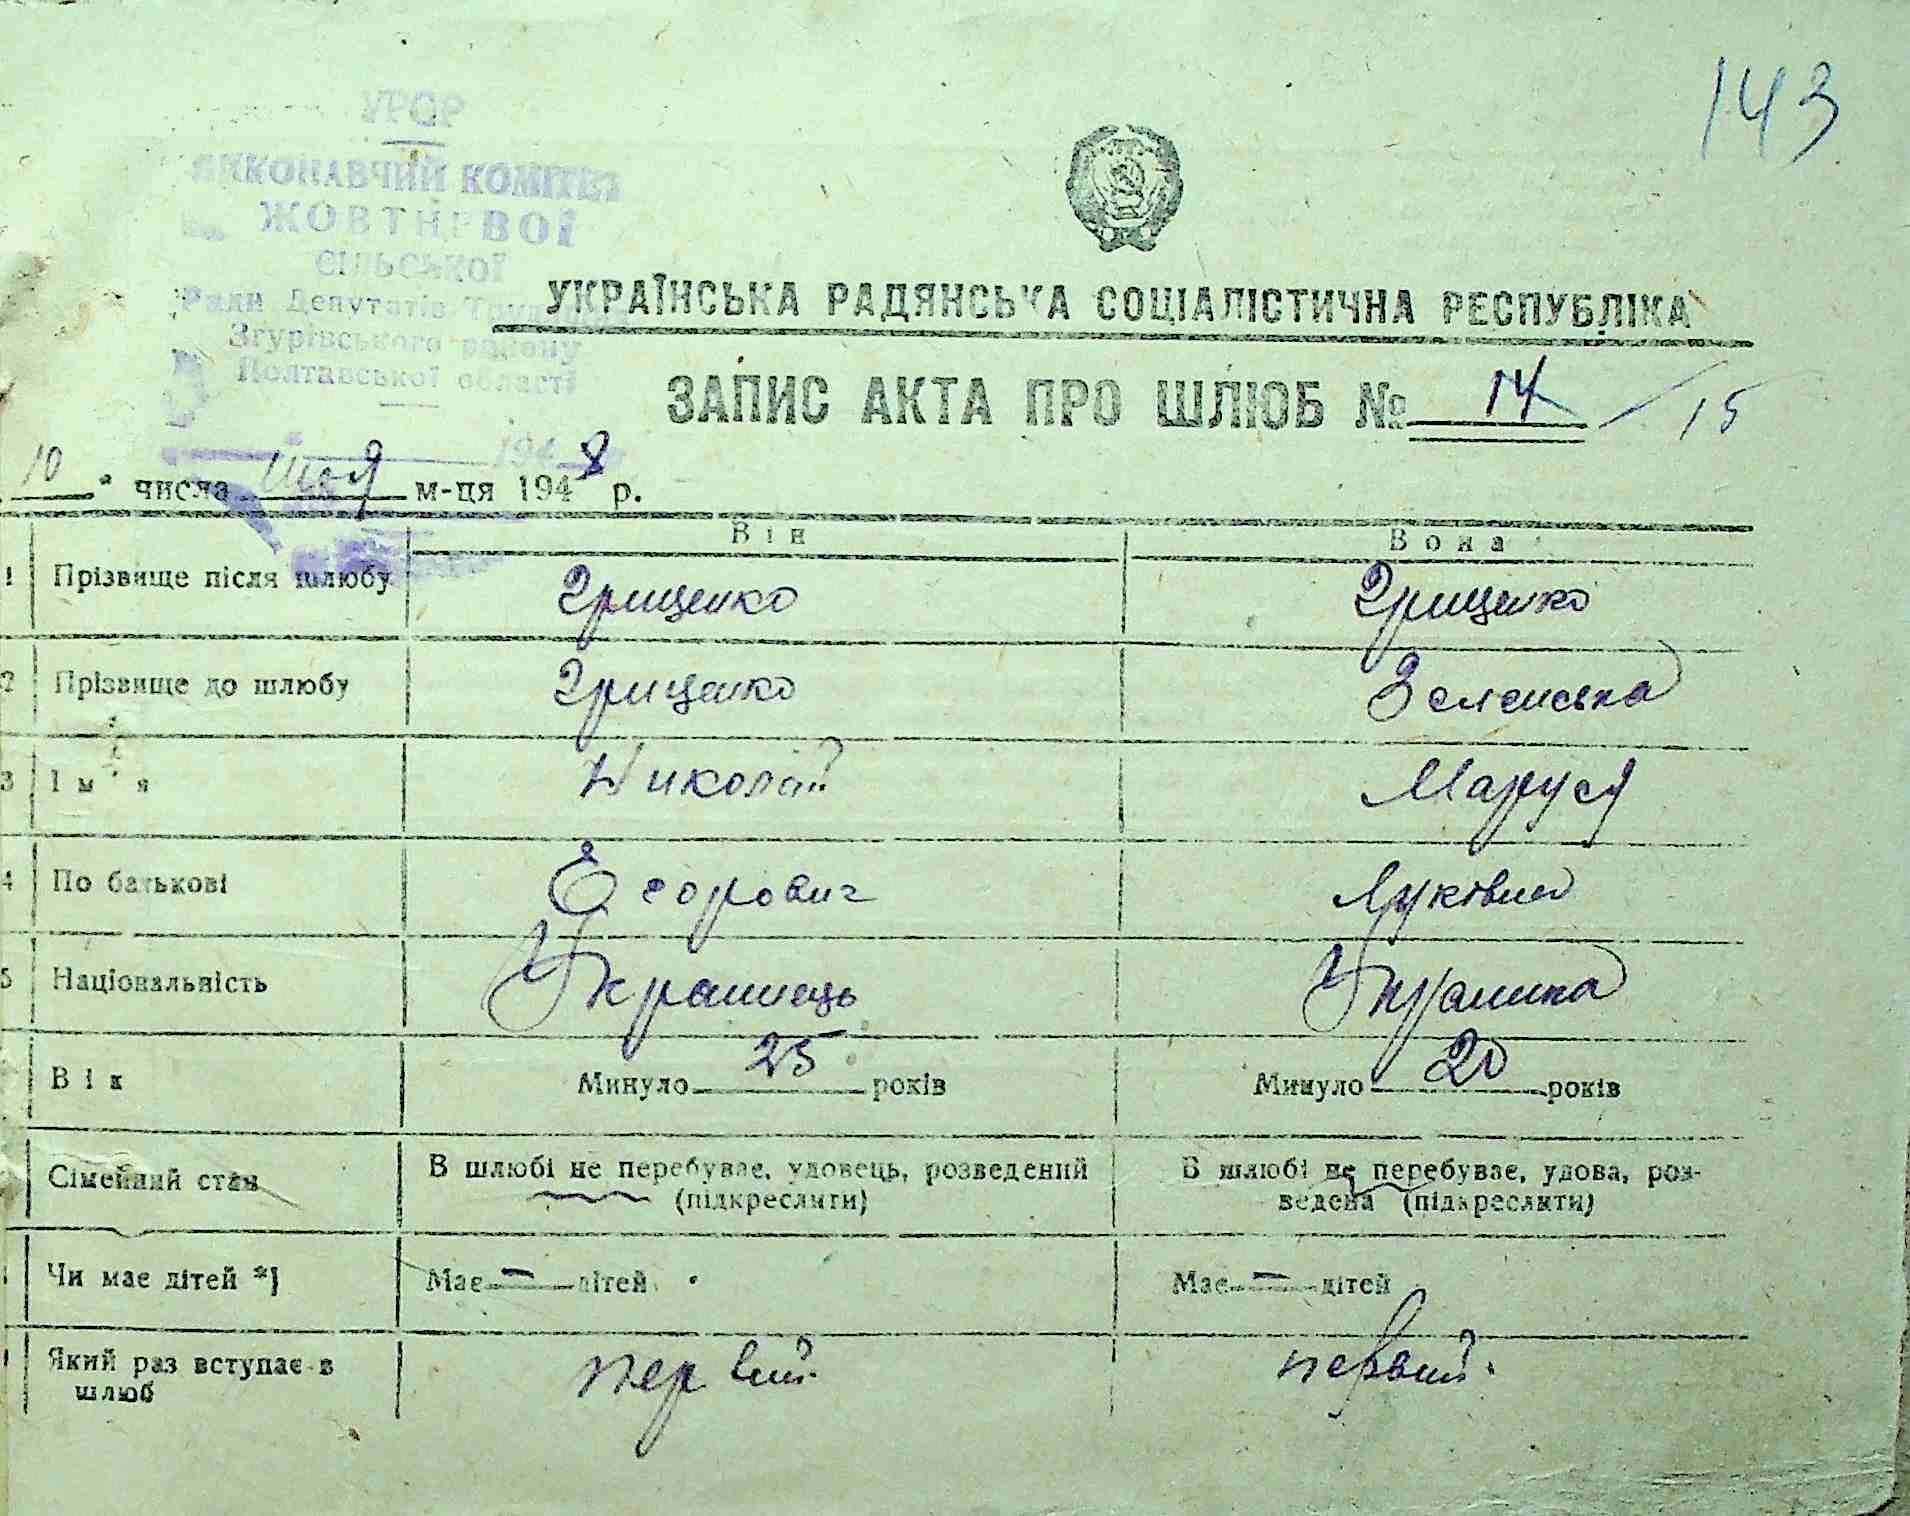 143
УРСР
ВИКОНАВЧИЙ КОМІТЕТ
ЖОВТНЕВОЇ
СІЛЬСЬКОЇ
Ради Депутатів Трудящих
Згурівського району
Полтавської області
194
УКРАЇНСЬКА РАДЯНСЬКА СОЦІАЛІСТИЧНА РЕСПУБЛІКА
ЗАПИС АКТА ПРО ШЛЮБ № 14 / 15
10 " числа м-ця 1948 р.
Він Вона
1 Прізвище після шлюбу Грищенко Грищенко
2 Прізвище до шлюбу Грищенко Зеленська
3 Ім'я Николай Маруся
4 По батькові Егорович Луківна
5 Національність Украинець Украинка
Вік Минуло 25 років Минуло 20 років
Сімейний стан В шлюбі не перебуває, удовець, розведений (підкреслити) В шлюбі не перебуває, удова, роз-
ведена (підкреслити)
Чи має дітей *) Має — дітей Має — дітей
Який раз вступає в первий первий.
шлюб